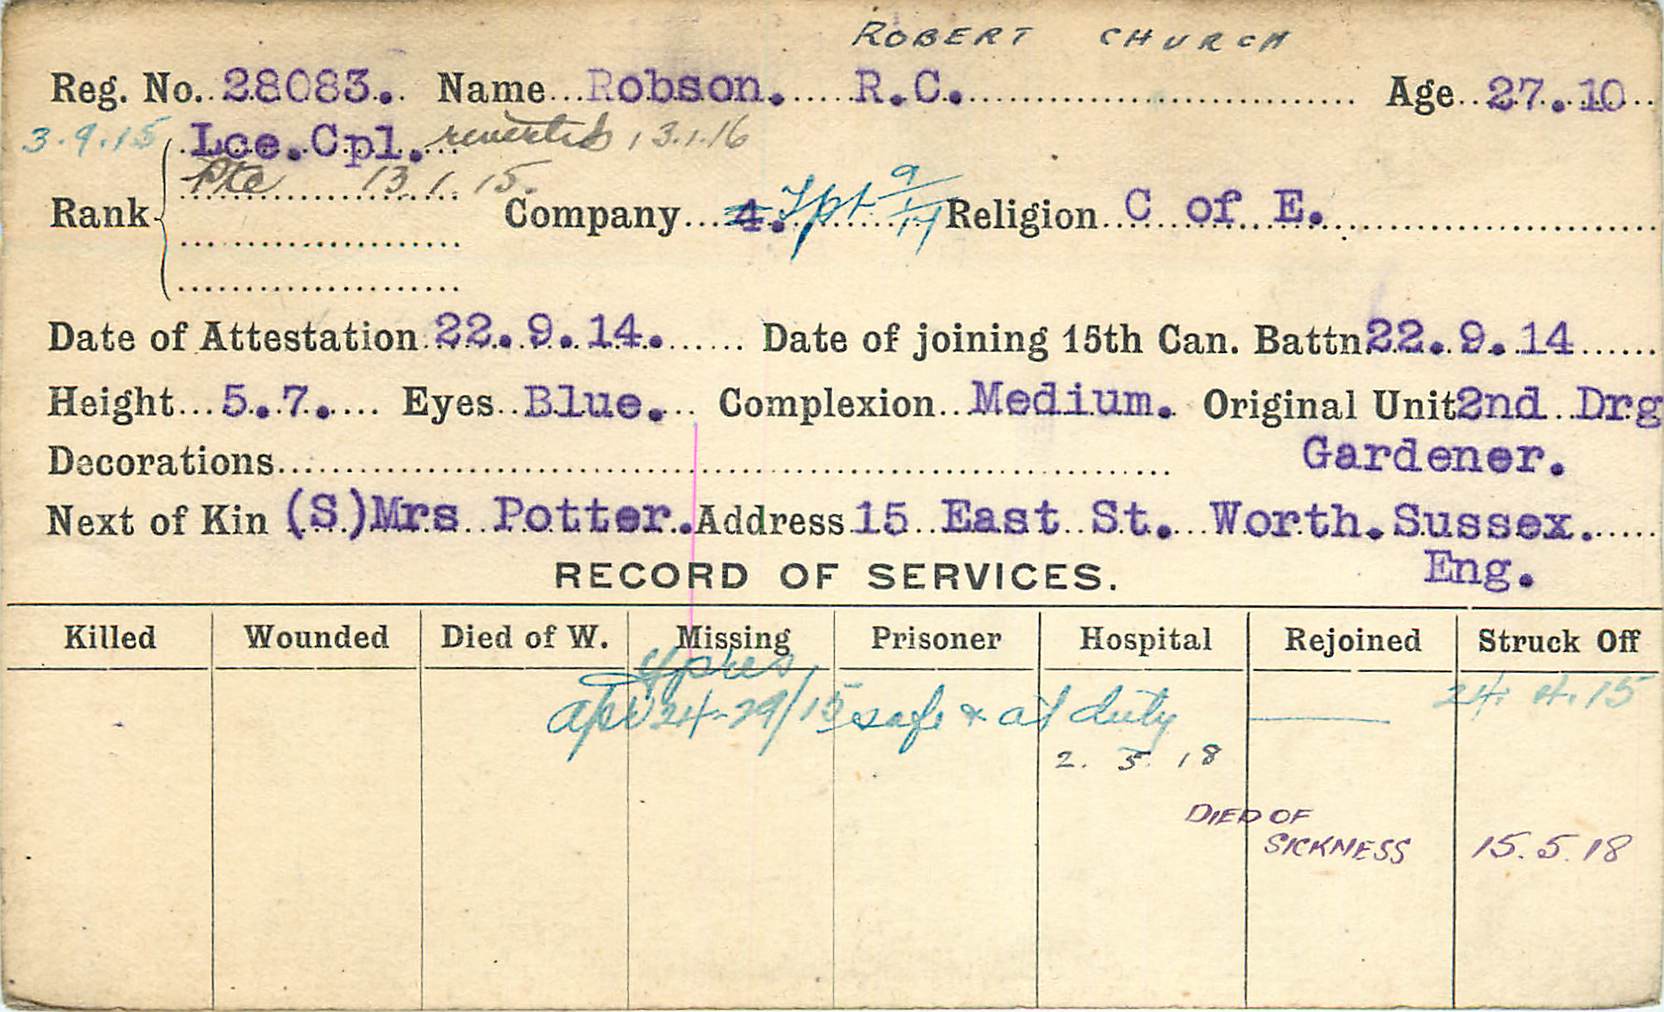 ROBERT CHURCH
Reg. No. 28083. Name Robson. R.C. Age 27.10
3.9.15 Lce.Cpl. reverted 13.1.16
Pte 13.1.15.
Rank Company 4. Tpt 9/17 Religion C of E.
Date of Attestation 22.9.14. Date of joining 15th Can. Battn. 22.9.14
Height 5.7. Eyes Blue. Complexion Medium. Original Unit 2nd Drg
Decorations Gardener.
Next of Kin (S)Mrs Potter. Address 15 East St. Worth. Sussex.
Eng.
RECORD OF SERVICES.
Killed Wounded Died of W. Missing Prisoner Hospital Rejoined Struck Off
Ypres
Apr 24-29/15 safe & at duty 24.4.15
2. 5. 18
DIED OF
SICKNESS 15.5.18